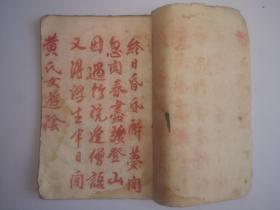 終日昏昏醉夢間
忽聞春盡強登山
因過竹院逢僧話
又得浮生半日閒
黄氏女遊陰